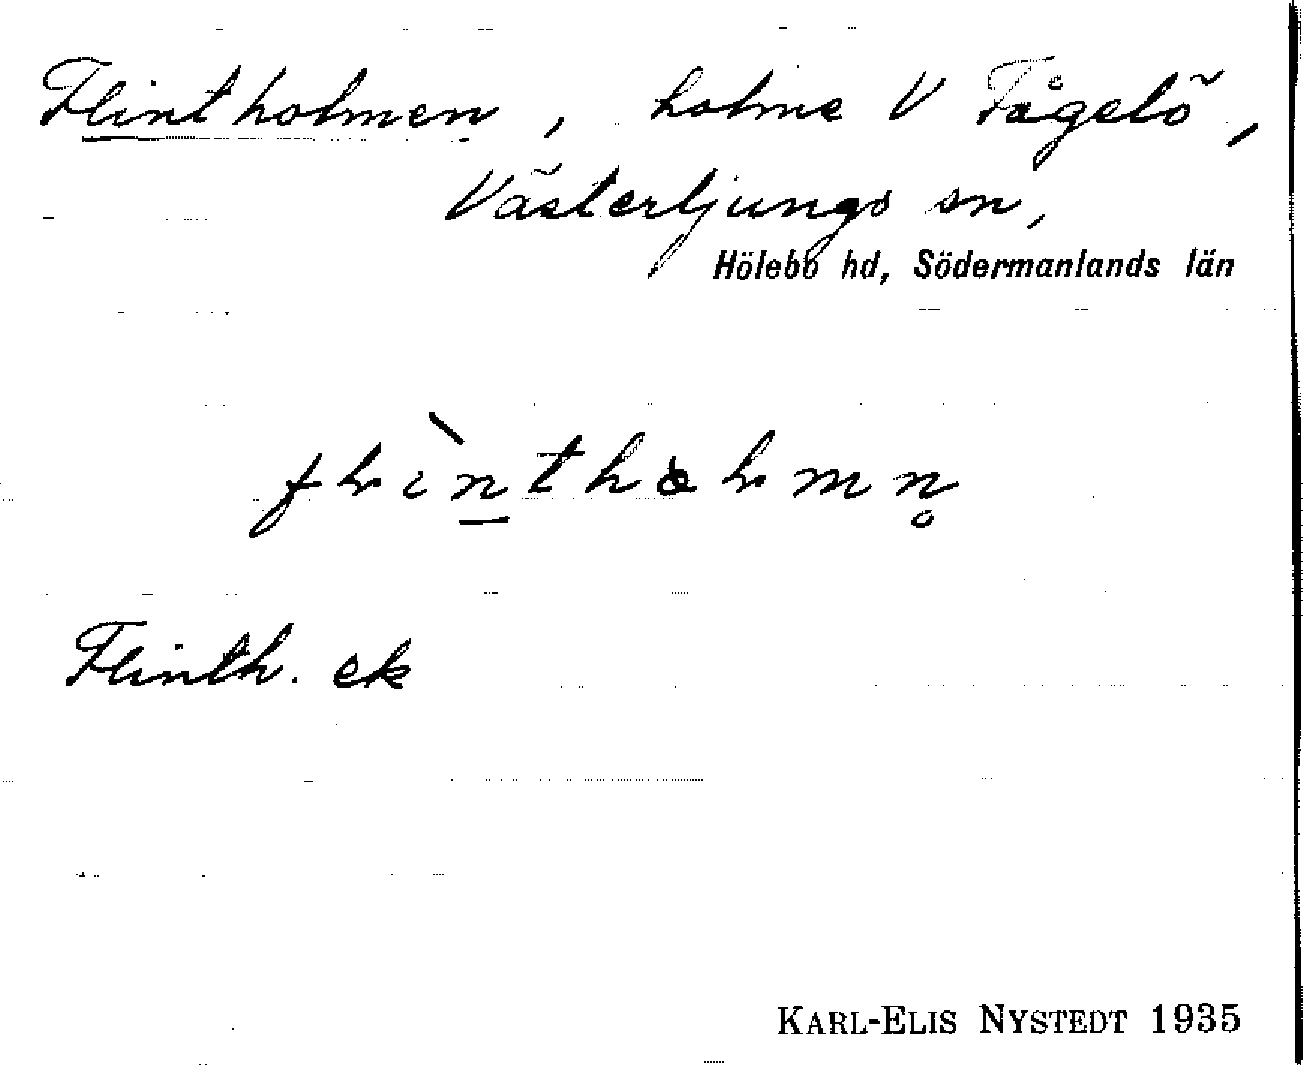 Flintholmen, holme V Fågelö,
Västerljungs sn,
Hölebo hd, Södermanlands län
Flinth. ek
KARL-ELIS NYSTEDT 1935